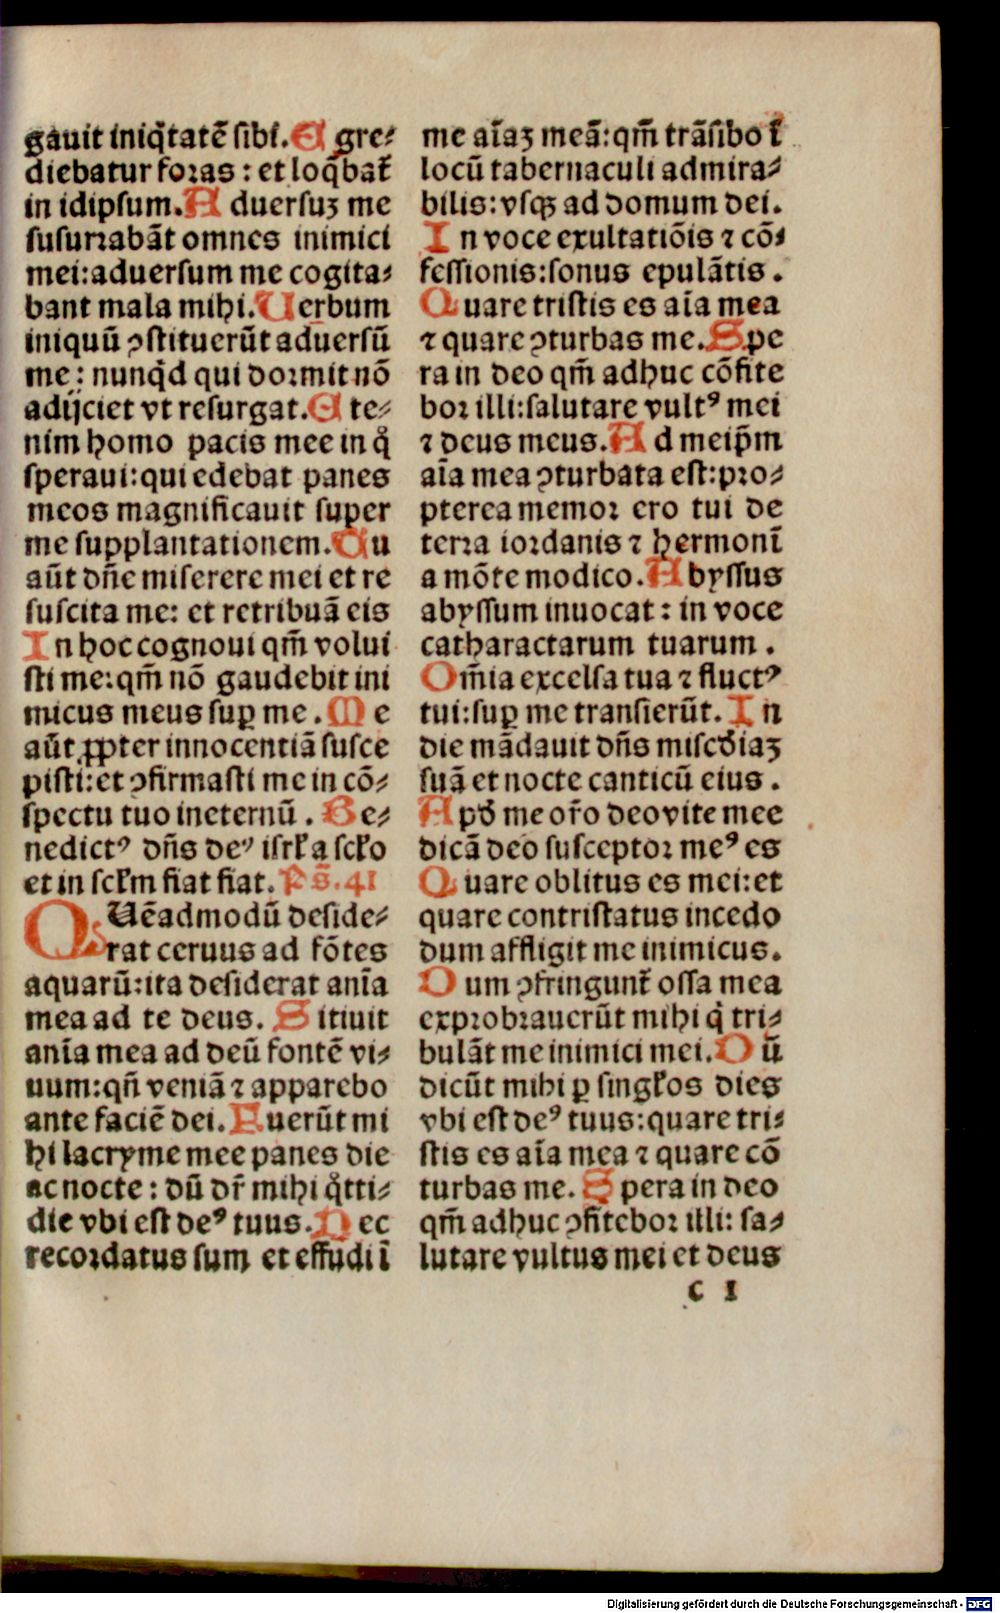 gauit iniq̃tatẽ sibi. E gre⸗
diebatur foras : et loq̃bat᷑
in idipsum. A duersuꝫ me
susurrabãt omnes inimici
mei: aduersum me cogita⸗
bant mala mihi. Uerbum
iniquũ ꝯstituerũt aduersũ
me : nunq̃d qui dormit nõ
adijciet vt resurgat. E te⸗
nim homo pacis mee in q̊
speraui: qui edebat panes
meos magnificauit super
me supplantationem. Tu
aũt dñe miserere mei et re
suscita me: et retribuã eis
In hoc cognoui qm̃ volui
sti me: qm̃ nõ gaudebit ini
micus meus suꝑ me . Me
aũt ꝓpter innocentiã susce
pisti: et ꝯfirmasti me in cõ⸗
spectu tuo in eternũ . Be⸗
nedictꝰ dñs deꝰ isrł a scło
et in scłm fiat fiat. Ps̃. 41
QUẽadmodũ deside⸗
rat ceruus ad fõtes
aquarũ: ita desiderat ani̅a
mea ad te deus. Sitiuit
ani̅a mea ad deũ fontẽ vi⸗
uum: qñ veniã ⁊ apparebo
ante faciẽ dei. Fuerũt mi
hi lacryme mee panes die
ac nocte : dũ dr̃ mihi q̊tti⸗
die vbi est deꝰ tuus. Nec
recordatus sum et effudi ĩ
me ai̅aꝫ meã: qm̃ trãsibo ĩ
locũ tabernaculi admira⸗
bilis: vsqꝫ ad domum dei.
In voce exultatiõis ⁊ cõ⸗
fessionis: sonus epulãtis .
Quare tristis es ai̅a mea
⁊ quare ꝯturbas me. Spe
ra in deo qm̃ adhuc cõfite
bor illi: salutare vultꝰ mei
⁊ deus meus. Ad meip̃m
ai̅a mea ꝯturbata est: pro⸗
pterea memor ero tui de
terra iordanis ⁊ hermonĩ
a mõte modico. Abyssus
abyssum inuocat : in voce
catharactarum tuarum .
Om̃ia excelsa tua ⁊ fluctꝰ
tui: suꝑ me transierũt. In
die mãdauit dñs misc̃diaꝫ
suã et nocte canticũ eius .
Apð me or̃o deo vite mee
dicã deo susceptor meꝰ es
Quare oblitus es mei: et
quare contristatus incedo
dum affligit me inimicus.
Dum ꝯfringunt᷑ ossa mea
exprobrauerũt mihi q̇ tri⸗
bulãt me inimici mei. Dũ
dicũt mihi ꝑ singłos dies
vbi est deꝰ tuus: quare tri⸗
stis es ai̅a mea ⁊ quare cõ
turbas me. Spera in deo
qm̃ adhuc ꝯfitebor illi: sa⸗
lutare vultus mei et deus
c 1
Digitalisierung gefördert durch die Deutsche Forschungsgemeinschaft - DFG